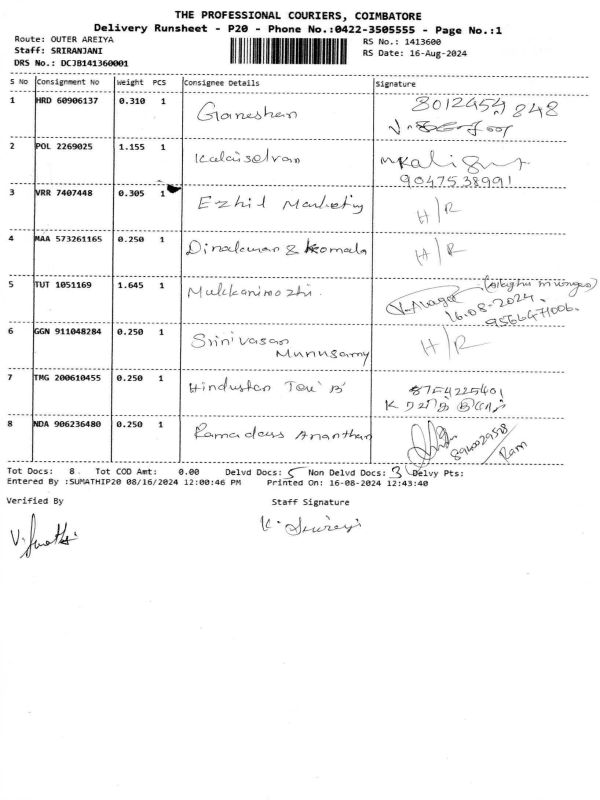 THE PROFESSIONAL COURIERS, COIMBATORE
Delivery Runsheet - P20 - Phone No.:0422-3505555 - Page No.:1
Route: OUTER AREIYA
RS No.: 1413600
Staff: SRIRANJANI
RS Date: 16-Aug-2024
DRS No.: DCJB141360001
S No Consignment No Weight PCS Consignee Details Signature
1 HRD 60906137 0.310 1 Ganeshan 8012454 848
2 POL 2269025 1.155 1 Kalaiselvan
9047538991
3 VRR 7407448 0.305 1 Ezhil Marketing H/R
4 MAA 573261165 0.250 1 & Komala H/R
5 TUT 1051169 1.645 1
16.08.2024.
9566471006.
6 GGN 911048284 0.250 1 Srinivasan H/R
Murusamy
7 TMG 200610455 0.250 1 Hindustan 8754225401
8 NDA 906236480 0.250 1 Ramadeus Ananthan
Ram
Tot Docs: 8 Tot COD Amt: 0.00 Delvd Docs: 5 Non Delvd Docs: 3 Delvy Pts:
Entered By :SUMATHIP20 08/16/2024 12:00:46 PM Printed On: 16-08-2024 12:43:40
Verified By Staff Signature